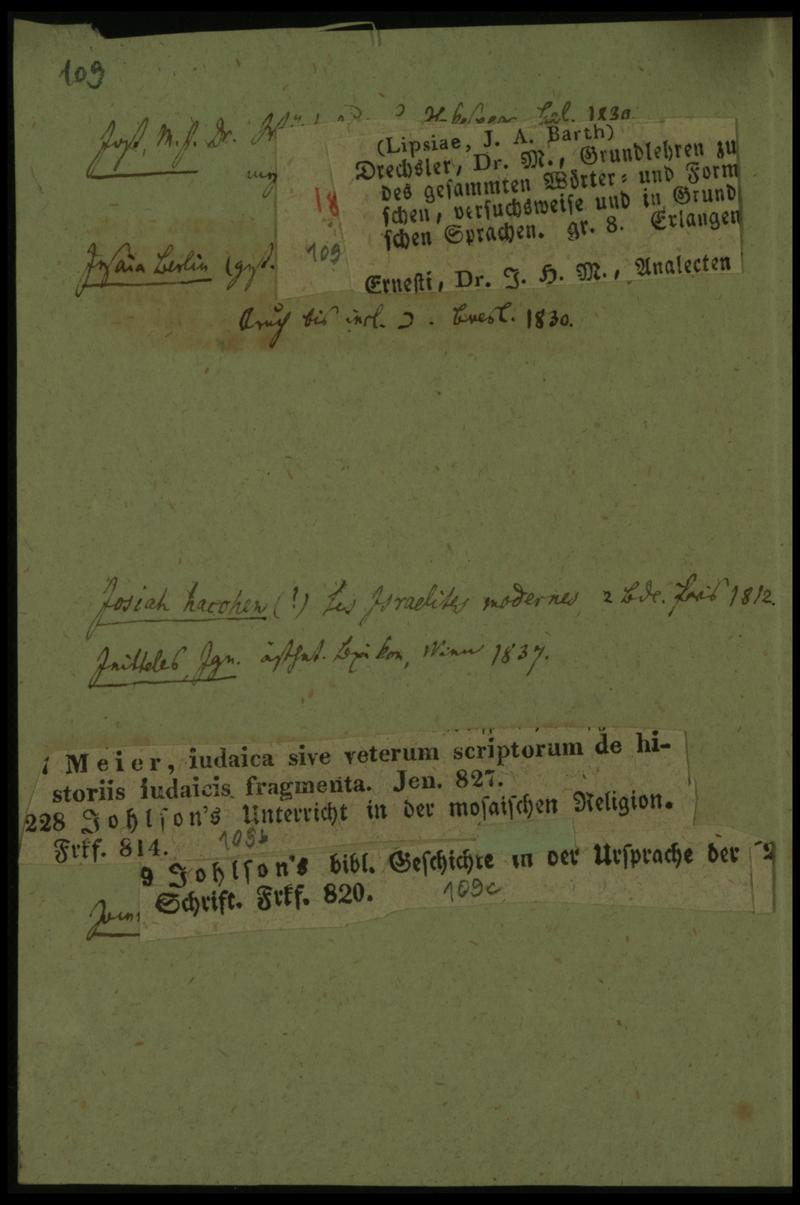 109
Jost, M. J. Dr.
1830
(Lipsiae, J. A. Barth)
Drechsler, Dr. M., Grundlehren zu
des gesammten Wörter- und Form
schen, versuchsweise und in Grund
18
schen Sprachen. gr. 8. Erlangen
109
Jesaia Berlin (gest.
Ernesti, Dr. J. H. M., Analecten
Aruch bis incl. כ. Bresl. 1830.
Josiah hacohen (?) Les Israelites modernes 2 Bde. Paris 1812.
Jeitteles, Ign. ästhet. Lexikon, Wien 1837.
Meier, iudaica sive veterum scriptorum de hi-
storiis iudaicis fragmenta. Jen. 827.
228 Johlson's Unterricht in der mosaischen Religion.
Frkf. 814. 109b
9 Johlson's bibl. Geschichte in der Ursprache der
Schrift. Frkf. 820. 109c